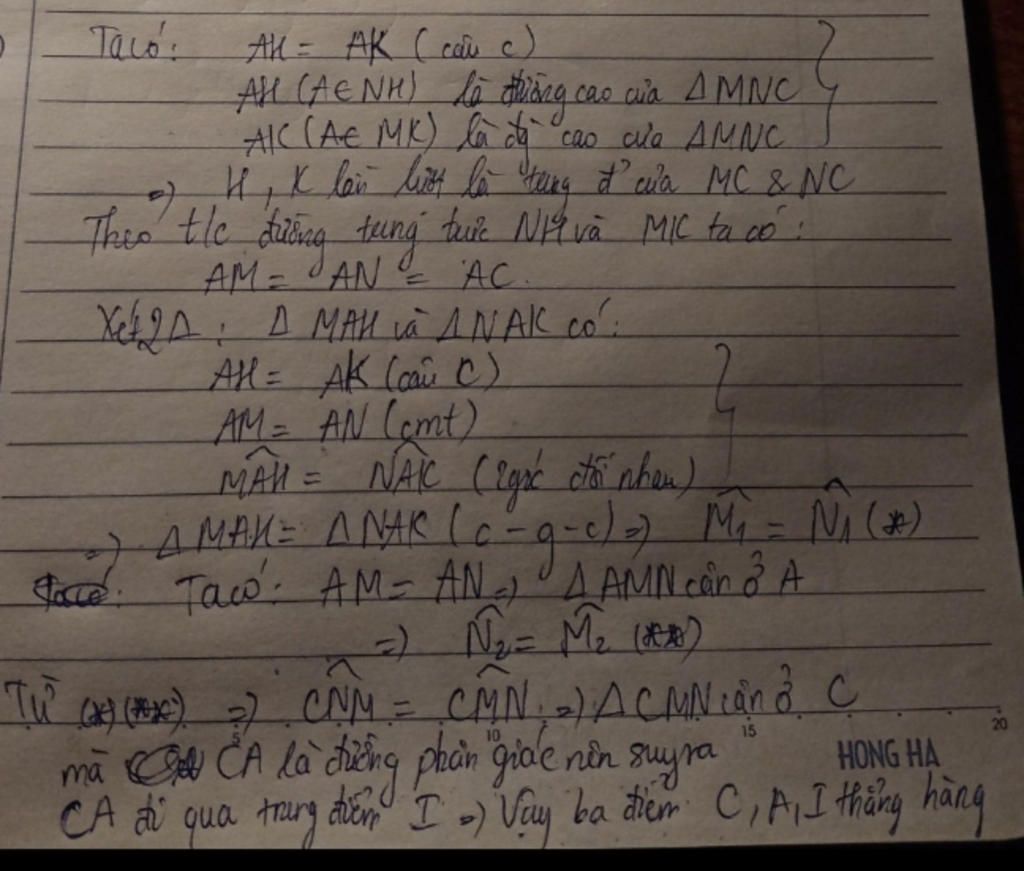 Ta có: AH = AK (câu c)
AH (A∈NH) là đường cao của ΔMNC
AK (A∈ MK) là đg cao của ΔMNC
=) H, K lần lượt là trung đ' của MC & NC
Theo t/c đường trung trực NH và MK ta có:
AM = AN = AC.
Xét 2Δ: Δ MAH và ΔNAK có:
AH = AK (câu C)
AM = AN (cmt)
MAH = NAK (2góc đối nhau)
=) Δ MAH = ΔNAK (c-g-c) =) M1 = N1 (*)
Ta có: AM = AN =) ΔAMN cân ở A
=) N2 = M2 (**)
Từ (*) (**) =) CNM = CMN =) ΔCMN cân ở C
5 10 15 20
mà CA là đường phân giác nên suy ra
HONG HA
CA đi qua trung điểm I =) Vậy ba điểm C, A, I thẳng hàng